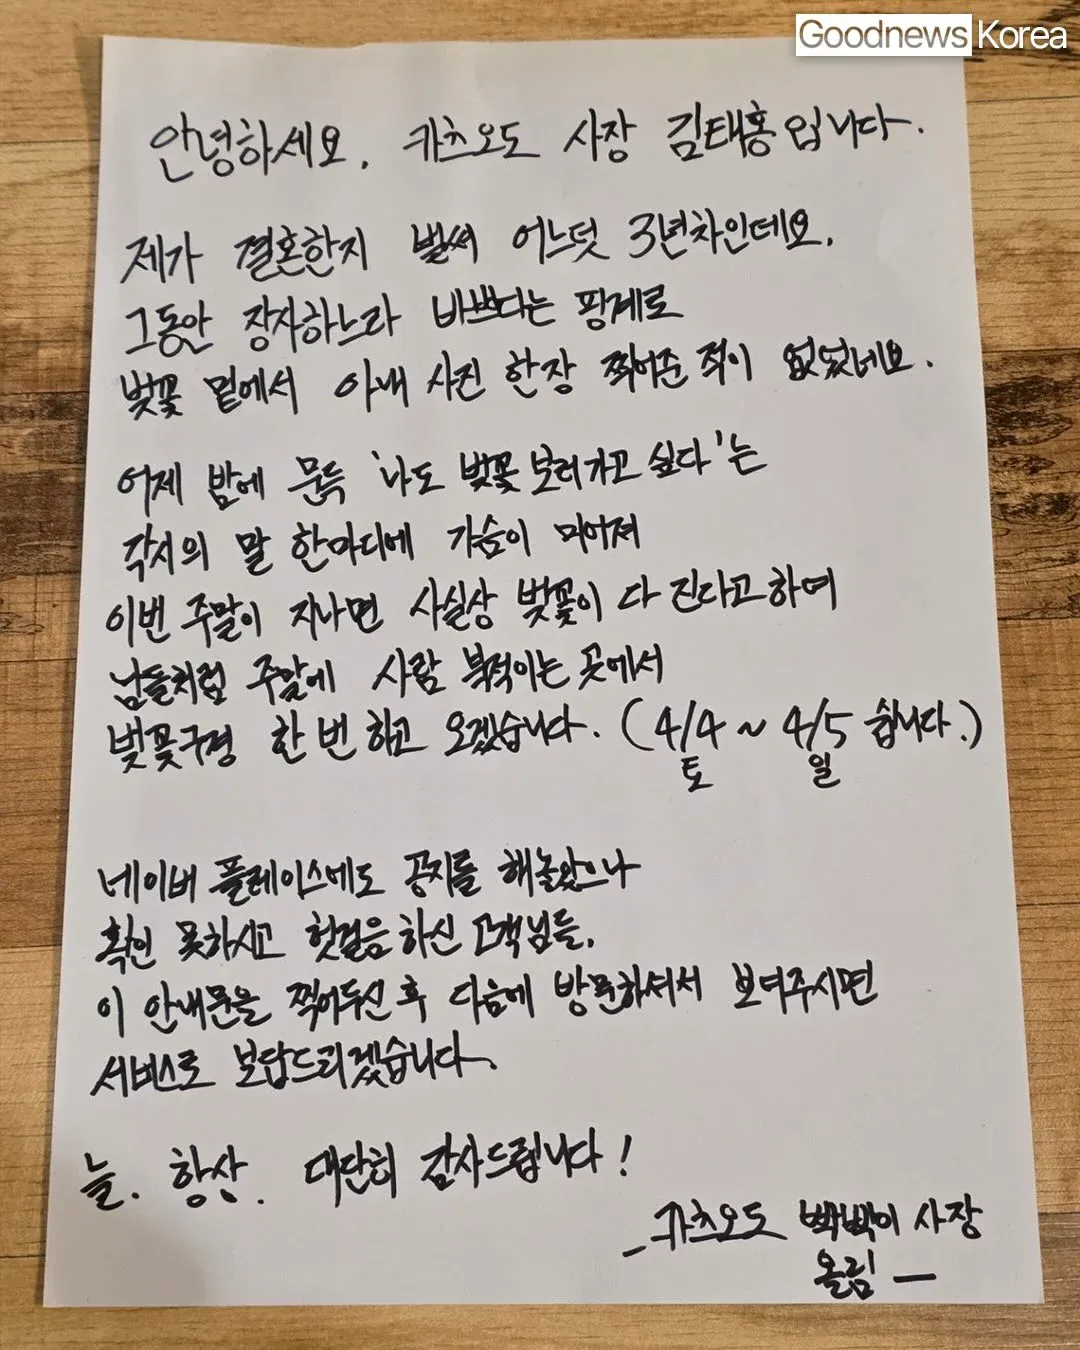 Goodnews Korea
안녕하세요. 카츠오도 사장 김태홍입니다.
제가 결혼한지 벌써 어느덧 3년차인데요.
그동안 장사하느라 바쁘다는 핑계로
벚꽃 밑에서 아내 사진 한장 찍어준 적이 없었네요.
어제 밤에 문득 '나도 벚꽃 보러가고 싶다'는
각시의 말 한마디에 가슴이 미어져
이번 주말이 지나면 사실상 벚꽃이 다 진다고 하여
남들처럼 주말에 사람 북적이는 곳에서
벚꽃구경 한 번 하고 오겠습니다. (4/4 ~ 4/5 쉽니다.)
토 일
네이버 플레이스에도 공지를 해놓았으나
확인 못하시고 헛걸음 하신 고객님들.
이 안내문을 찍어두신 후 다음에 방문하셔서 보여주시면
서비스로 보답드리겠습니다.
늘. 항상. 대단히 감사드립니다!
- 카츠오도 빡빡이 사장
올림 -